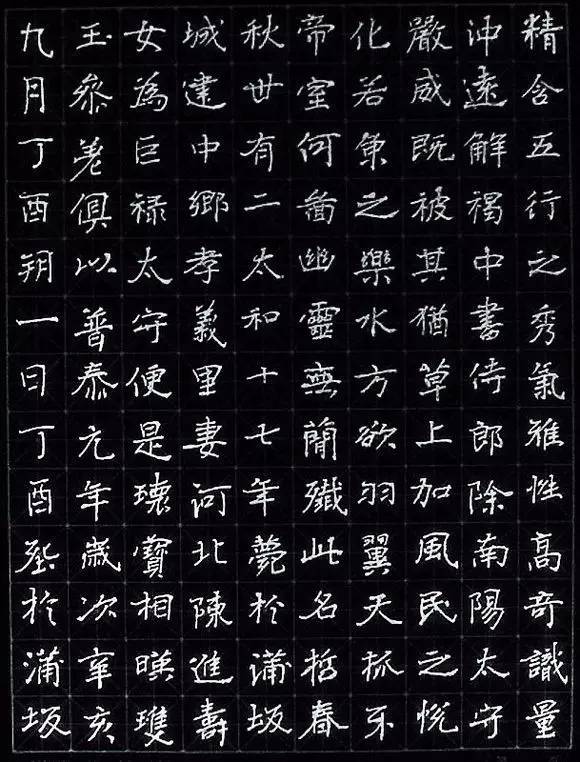 精含五行之秀氣雅性高奇識量
沖遠解褐中書侍郎除南陽太守
嚴威既被其猶草上加風民之悅
化若魚之樂水方欲羽翼天抓牙
帝室何圖幽靈無簡殲此名哲春
秋卅有二太和十七年薨於蒲坂
城建中鄉孝義里妻河北陳進壽
女為巨祿太守便是瓌寶相暎瓊
玉參差俱以普泰元年歲次辛亥
九月丁酉朔一日丁酉塟於蒲坂